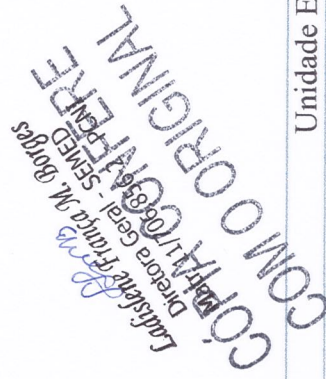 CÓPIA CONFERE
COM O ORIGINAL
Ladislene França M. Borges
Diretora Geral - SEMED
Matr. 11/706.856-2 - PCNI
Unidade E